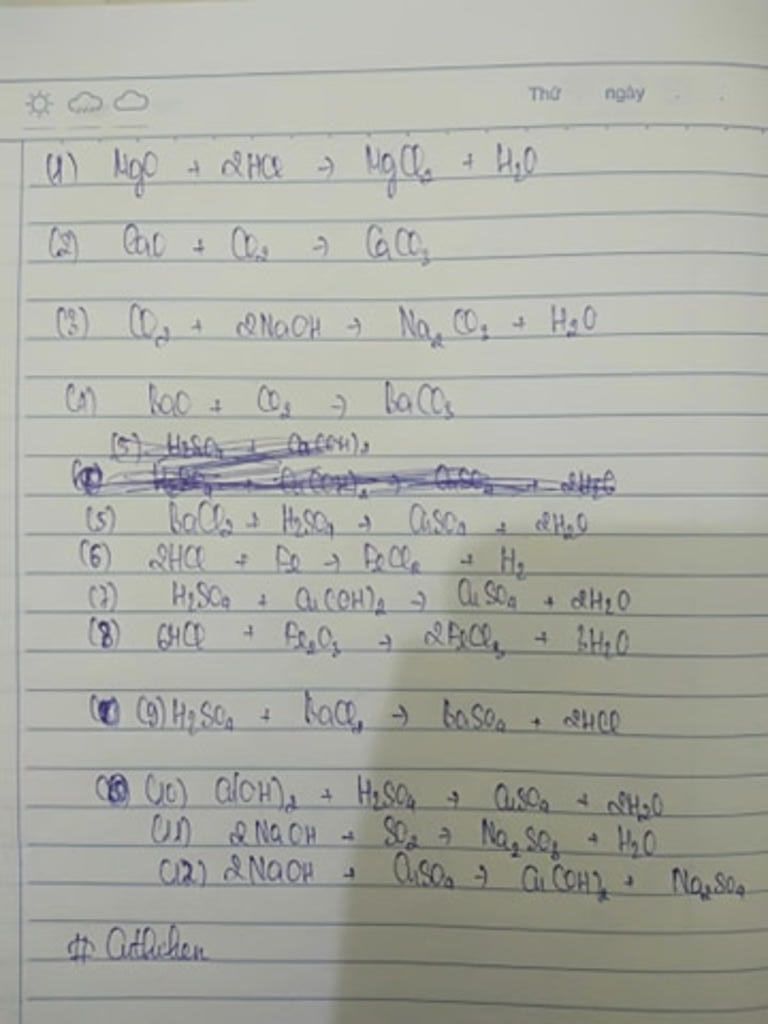 Thứ ngày
(1) MgO + 2HCl → MgCl₂ + H₂O
(2) CaO + CO₂ → CaCO₃
(3) CO₂ + 2NaOH → Na₂CO₃ + H₂O
(4) BaO + CO₂ → BaCO₃
(5) H₂SO₄ + Cu(OH)₂
H₂SO₄ + Cu(OH)₂ → CuSO₄ + 2H₂O
(5) BaCl₂ + H₂SO₄ → CuSO₄ + 2H₂O
(6) 2HCl + Fe → FeCl₂ + H₂
(7) H₂SO₄ + Cu(OH)₂ → CuSO₄ + 2H₂O
(8) 6HCl + Fe₂O₃ → 2FeCl₃ + 3H₂O
(9) H₂SO₄ + BaCl₂ → BaSO₄ + 2HCl
(10) Cu(OH)₂ + H₂SO₄ → CuSO₄ + 2H₂O
(11) 2NaOH + SO₂ → Na₂SO₃ + H₂O
(12) 2NaOH + CuSO₄ → Cu(OH)₂ + Na₂SO₄